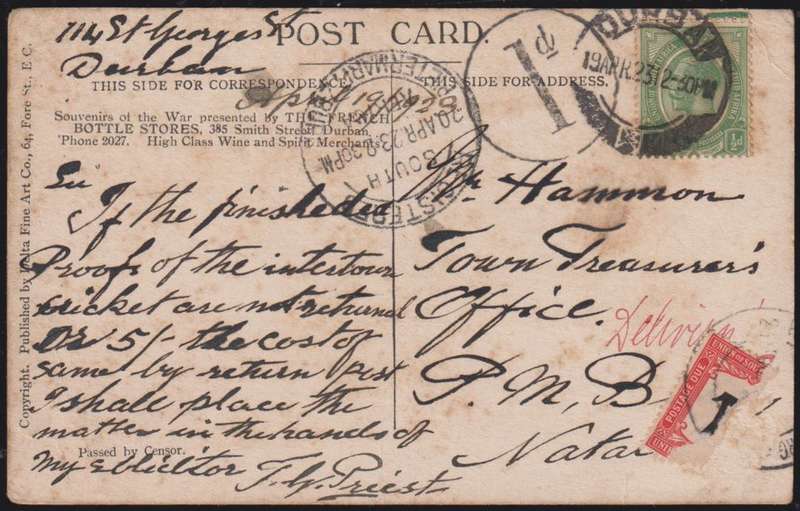 POST CARD.
THIS SIDE FOR CORRESPONDENCE.
THIS SIDE FOR ADDRESS.
114 St Georges St
Durban
April 19/1923
Souvenirs of the War presented by THE FRENCH
BOTTLE STORES, 385 Smith Street, Durban.
'Phone 2027. High Class Wine and Spirit Merchants
If the finished
Proofs of the intertown
cricket are not returned
or 5/- the cost of
same by return Post
I shall place the
matter in the hands of
my Solicitor T. G. Priest
Passed by Censor.
Copyright. Published by Delta Fine Art Co., 64, Fore St., E.C.
Mr Hammon
Town Treasurer's
Office.
P. M, B
Natal
1d
DURBAN
19 APR. 23 12-30 PM
20 APR 23 8 30 PM
SOUTH
½d
POSTAGE DUE
UNION OF SOU
T